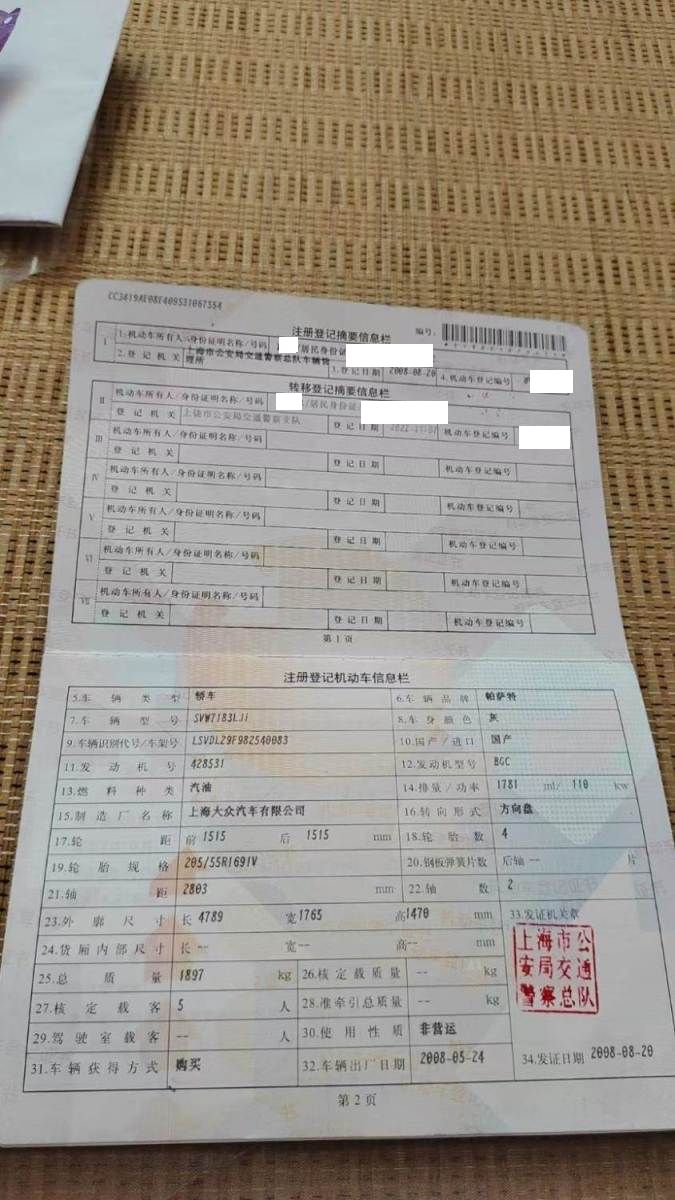 CC3419AE08E409531067554
注册登记摘要信息栏 编号:
I 1.机动车所有人/身份证明名称/号码 /居民身份证
2.登记机关 上海市公安局交通警察总队车辆管理所 3.登记日期 2008-08-20 4.机动车登记编号
转移登记摘要信息栏
II 机动车所有人/身份证明名称/号码 /居民身份证
登记机关 上饶市公安局交通警察支队 登记日期 机动车登记编号
III 机动车所有人/身份证明名称/号码
登记机关 登记日期 机动车登记编号
IV 机动车所有人/身份证明名称/号码
登记机关 登记日期 机动车登记编号
V 机动车所有人/身份证明名称/号码
登记机关 登记日期 机动车登记编号
VI 机动车所有人/身份证明名称/号码
登记机关 登记日期 机动车登记编号
VII 机动车所有人/身份证明名称/号码
登记机关 登记日期 机动车登记编号
第1页
注册登记机动车信息栏
5.车辆类型 轿车 6.车辆品牌 帕萨特
7.车辆型号 SVW7183LJi 8.车身颜色 灰
9.车辆识别代号/车架号 LSVDL29F982540083 10.国产/进口 国产
11.发动机号 428531 12.发动机型号 BGC
13.燃料种类 汽油 14.排量/功率 1781 ml/ 110 kw
15.制造厂名称 上海大众汽车有限公司 16.转向形式 方向盘
17.轮距 前 1515 后 1515 mm 18.轮胎数 4
19.轮胎规格 205/55R1691V 20.钢板弹簧片数 后轴 -- 片
21.轴距 2803 mm 22.轴数 2
23.外廓尺寸 长 4789 宽 1765 高 1470 mm 33.发证机关章
24.货厢内部尺寸 长 -- 宽 -- 高 -- mm
上海市公
安局交通
警察总队
25.总质量 1897 kg 26.核定载质量 -- kg
27.核定载客 5 人 28.准牵引总质量 -- kg
29.驾驶室载客 -- 人 30.使用性质 非营运
31.车辆获得方式 购买 32.车辆出厂日期 2008-05-24 34.发证日期 2008-08-20
第2页